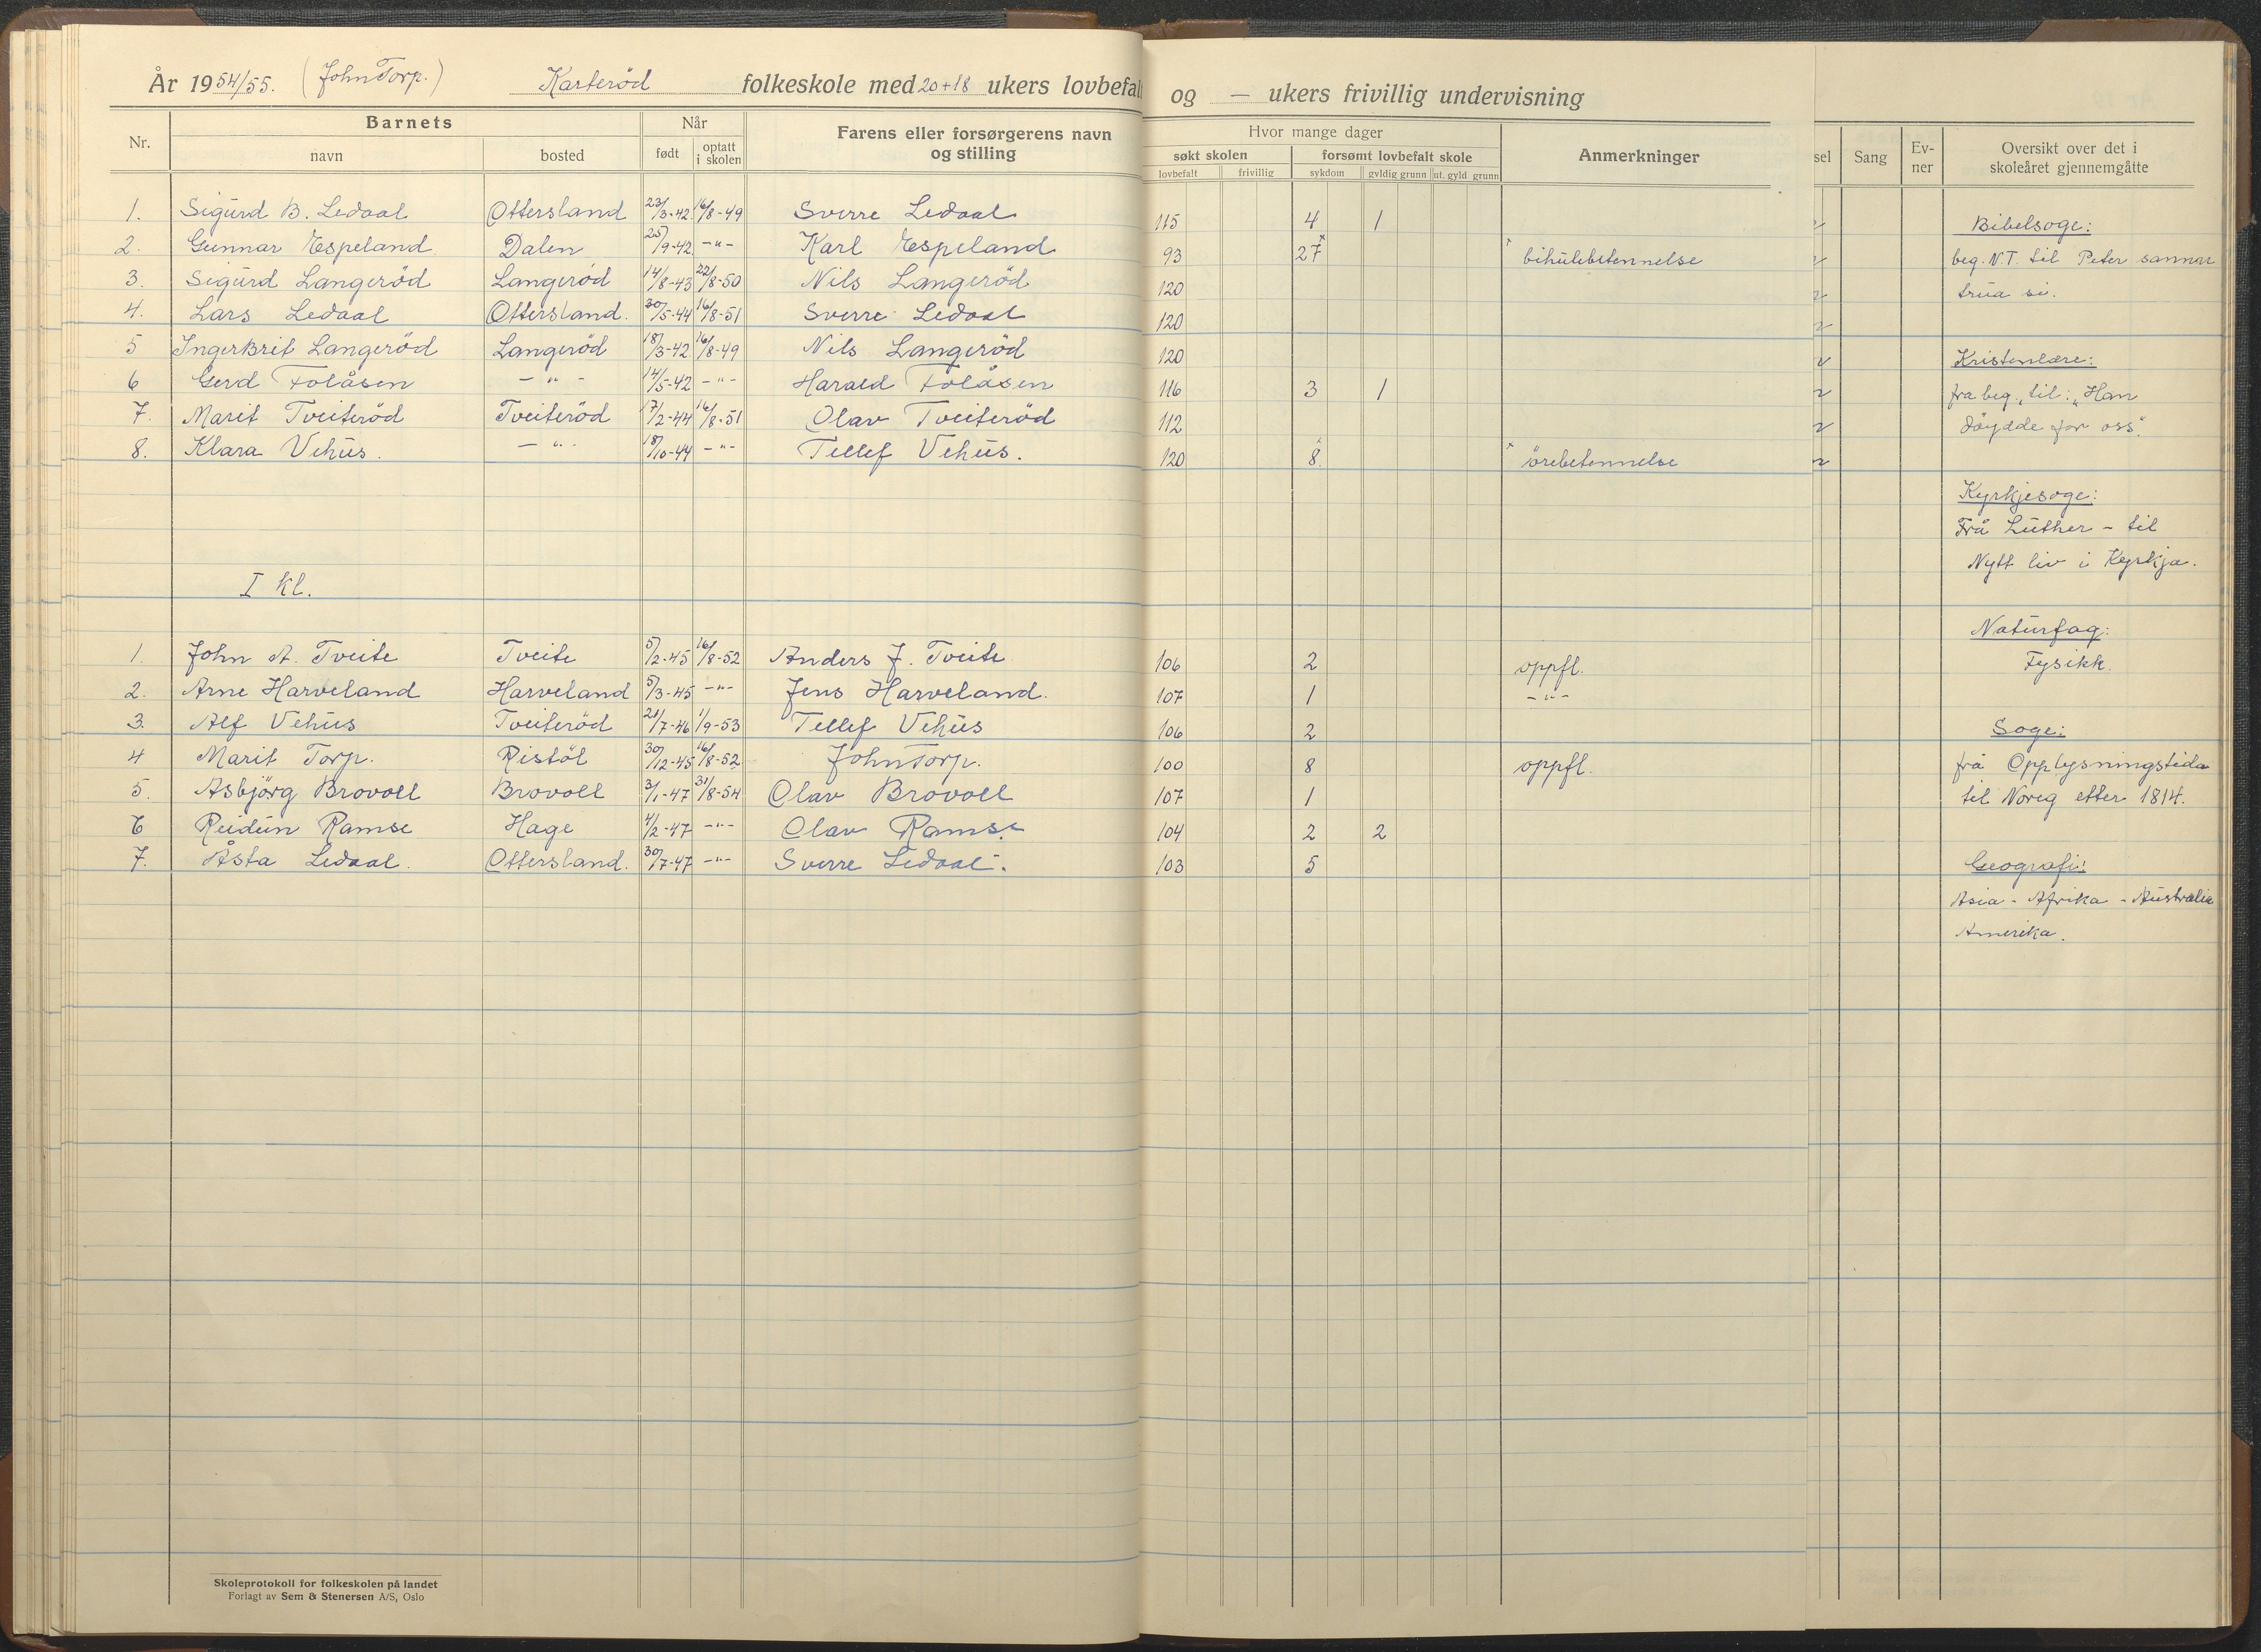 År 1954/55. (John Torp.) Karteröd folkeskole med 20+18 ukers lovbefal og — ukers frivillig undervisning
Nr. Barnets Når Farens eller forsørgerens navn og stilling Hvor mange dager Anmerkninger sel Sang Ev-ner Oversikt over det i skoleåret gjennemgåtte
navn bosted født optatt i skolen søkt skolen forsømt lovbefalt skole
lovbefalt frivillig sykdom gyldig grunn ut. gyld grunn
1. Sigurd B. Ledaal Ottersland 23/3-42 16/8-49 Sverre Ledaal 115 4 1
2. Gunnar Espeland Dalen 25/9-42 -"- Karl Espeland 93 27 x x bihulebetennelse
3. Sigurd Langeröd Langeröd 14/8-43 22/8-50 Nils Langeröd 120
4. Lars Ledaal Ottersland. 30/5-44 16/8-51 Sverre Ledaal 120
5 Ingerbrit Langeröd Langeröd 18/3-42 16/8-49 Nils Langeröd 120
6 Gerd Folåsen -"- 14/5-42 -"- Harald Folåsen 116 3 1
7. Marit Tveiteröd Tveiteröd 17/2-44 16/8-51 Olav Tveiteröd 112
8. Klara Vehus. -"- 18/10-44 -"- Tellef Vehus. 120 8 x x örebetennelse
I kl.
1. John A. Tveite Tveite 5/2-45 16/8-52 Anders J. Tveite 106 2 oppfl.
2. Arne Harveland Harveland 5/3-45 -"- Jens Harveland. 107 1 -"-
3. Alf Vehus Tveiteröd 21/7-46 1/9-53 Tellef Vehus 106 2
4 Marit Torp. Ristöl 30/12-45 16/8-52 John Torp. 100 8 oppfl.
5. Asbjörg Brovoll Brovoll 3/1-47 31/8-54 Olav Brovoll 107 1
6 Reidun Ramse Hage 4/2-47 -"- Olav Ramse 104 2 2
7. Åsta Ledaal. Ottersland. 30/7-47 -"- Sverre Ledaal. 103 5
Bibelsoge:
beg. N.T. til Peter sannar
trua si.
Kristenlære:
fra beg., til: "Han
döydde for oss".
Kyrkjesoge:
Frå Luther - til
Nytt liv i Kyrkja.
Naturfag:
Fysikk.
Soge:
frå Opplysningstida
til Noreg etter 1814.
Geografi:
Asia - Afrika - Australia
Amerika.
Skoleprotokoll for folkeskolen på landet
Forlagt av Sem & Stenersen A/S, Oslo